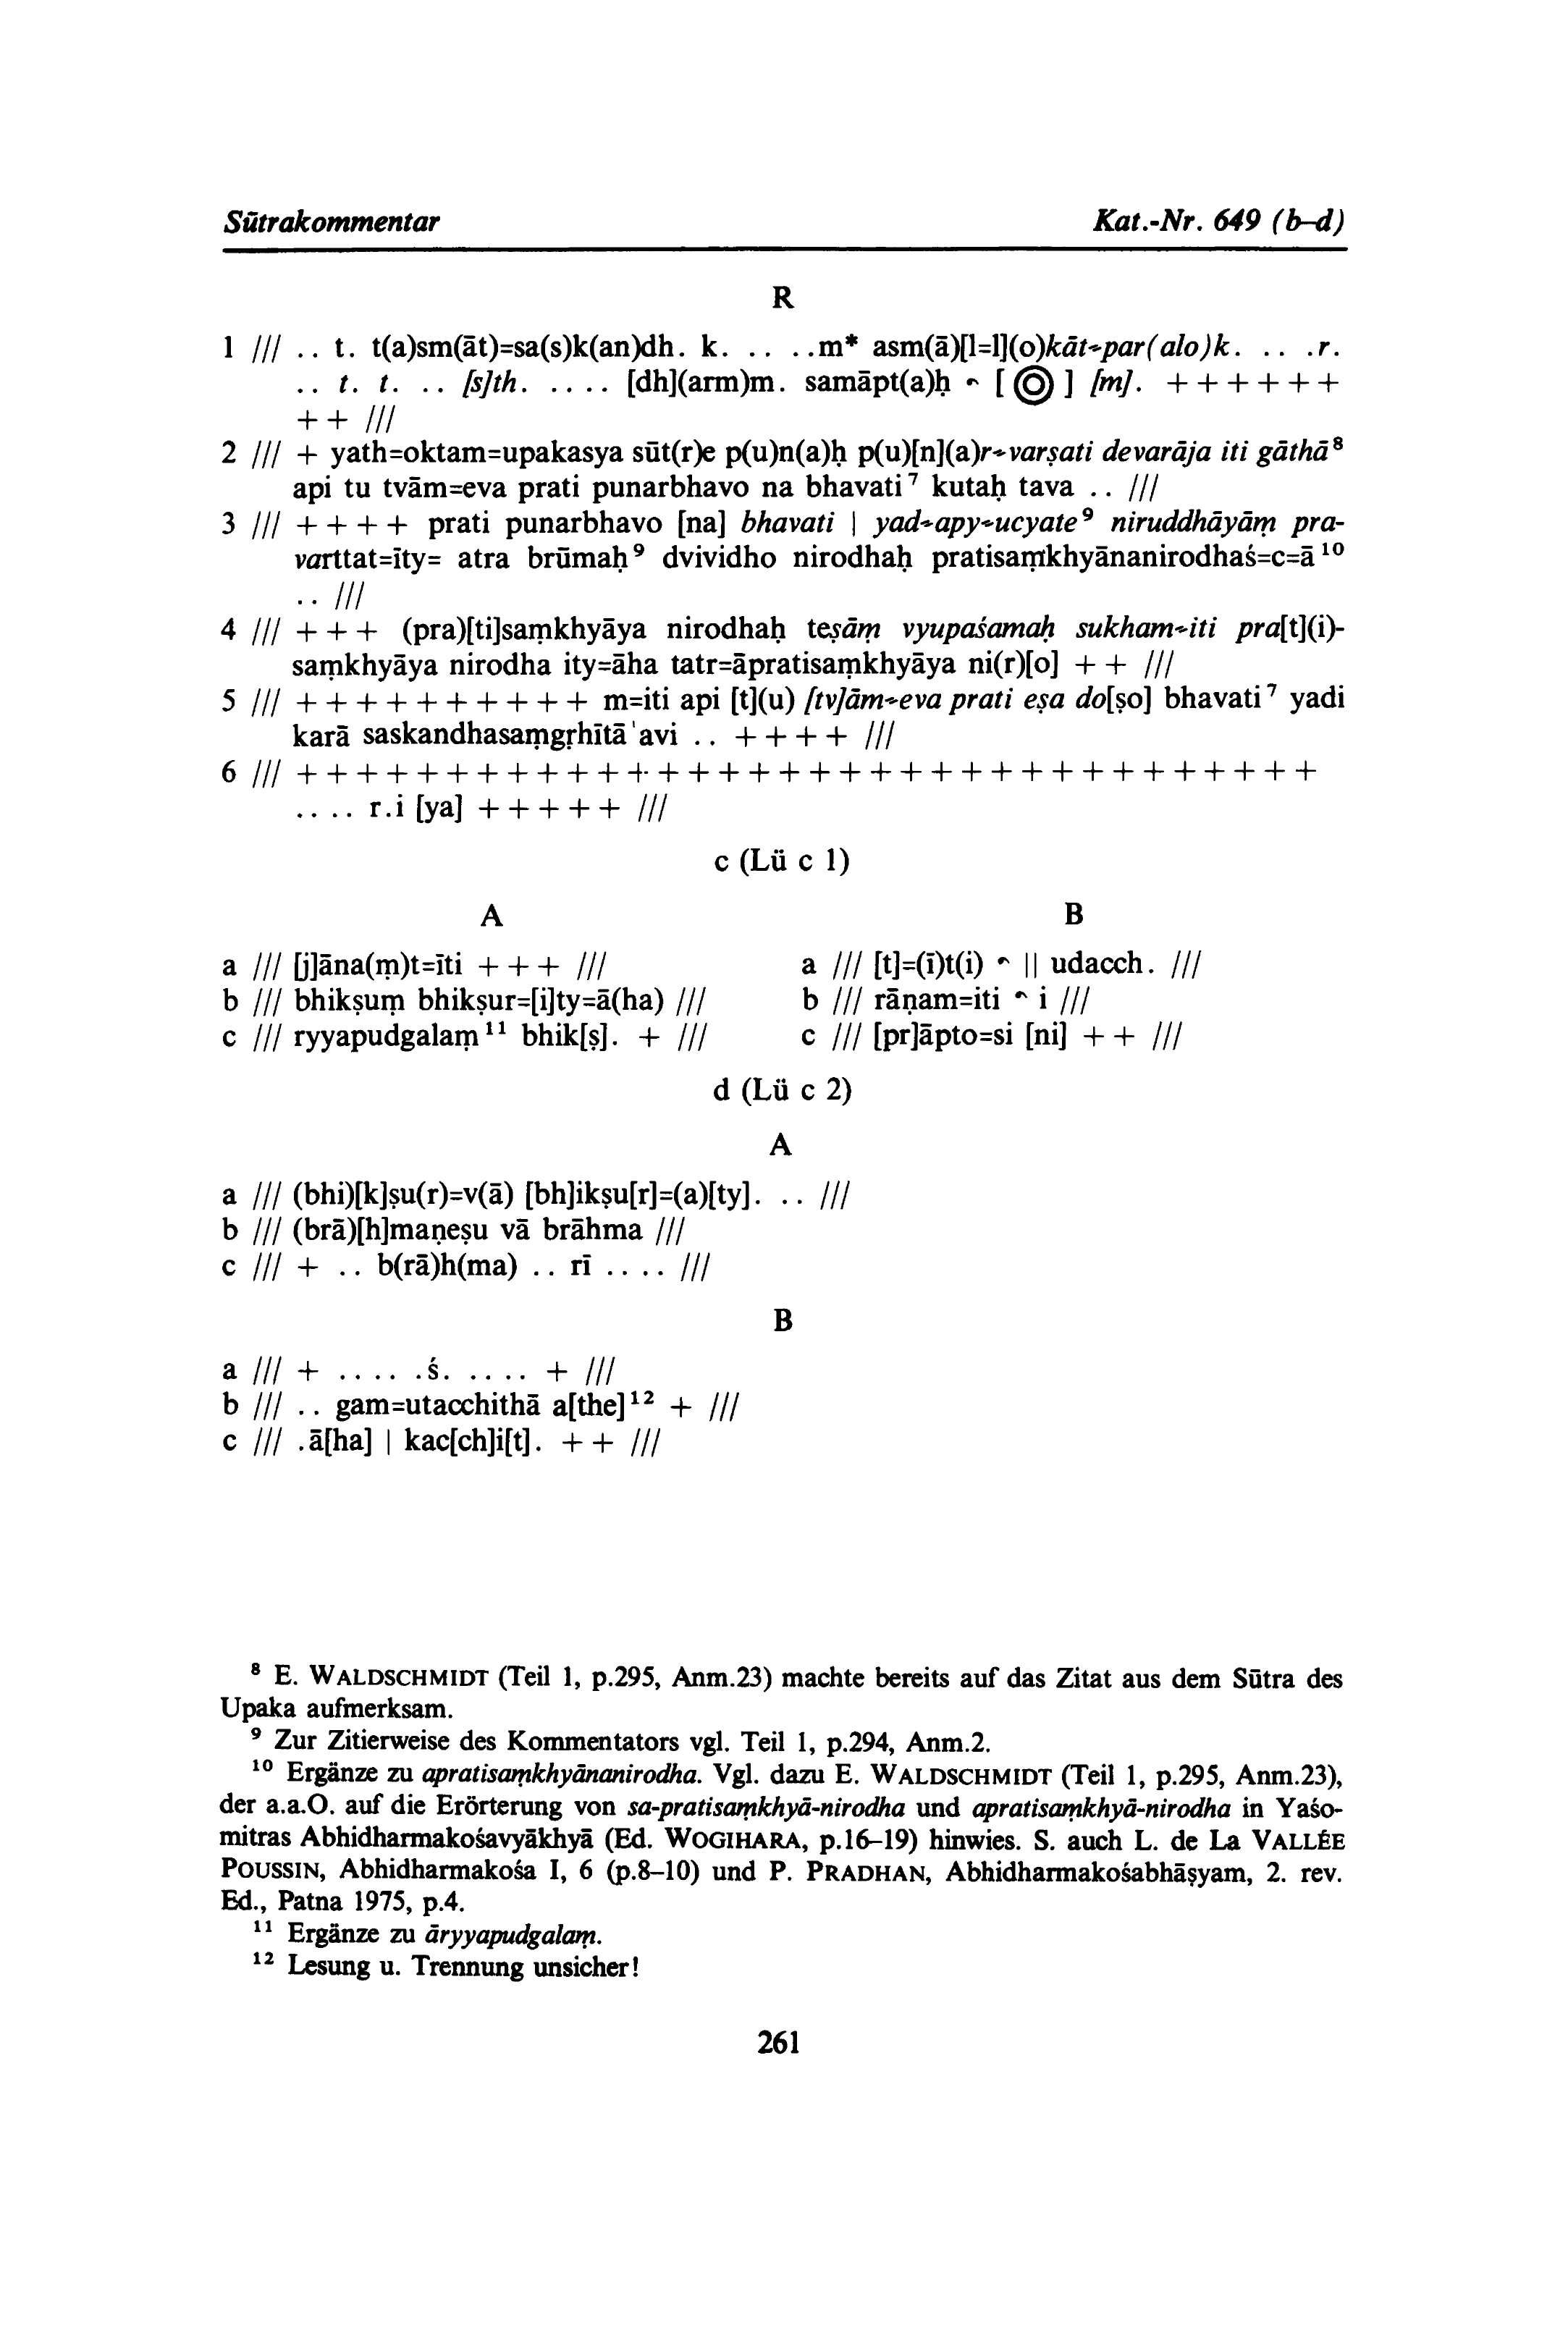 Sūtrakommentar Kat.-Nr. 649 (b–d)
R
1 /// .. t. t(a)sm(āt)=sa(s)k(an)dh. k. .. ..m* asm(ā)[l=l](o)kāt=par(alo)k. .. .r.
.. t. t. .. [s]th. .... [dh](arm)m. samāpt(a)ḥ ꣺ [◎] [m]. ++++++
++ ///
2 /// + yath=oktam=upakasya sūt(r)e p(u)n(a)ḥ p(u)[n](a)r=varṣati devarāja iti gāthā⁸
api tu tvām=eva prati punarbhavo na bhavati⁷ kutaḥ tava .. ///
3 /// ++++ prati punarbhavo [na] bhavati | yad=apy=ucyate⁹ niruddhāyāṃ pra-
varttat=īty= atra brūmaḥ⁹ dvividho nirodhaḥ pratisaṃkhyānanirodhaś=c=ā¹⁰
.. ///
4 /// +++ (pra)[ti]saṃkhyāya nirodhaḥ teṣāṃ vyupaśamaḥ sukham=iti pra[t](i)-
saṃkhyāya nirodha ity=āha tatr=āpratisaṃkhyāya ni(r)[o] ++ ///
5 /// ++++++++++ m=iti api [t](u) [tv]ām=eva prati eṣa do[ṣo] bhavati⁷ yadi
karā saskandhasaṃgṛhītā 'avi .. ++++ ///
6 /// ++++++++++++++++++++++++++++++++++
.... r.i [ya] +++++ ///
c (Lü c 1)
A B
a /// [j]āna(ṃ)t=īti +++ /// a /// [t]=(ī)t(i) ꣺ || udacch. ///
b /// bhikṣuṃ bhikṣur=[i]ty=ā(ha) /// b /// rāṇam=iti ꣺ i ///
c /// ryyapudgalaṃ¹¹ bhik[ṣ]. + /// c /// [pr]āpto=si [ni] ++ ///
d (Lü c 2)
A
a /// (bhi)[k]ṣu(r)=v(ā) [bh]ikṣu[r]=(a)[ty]. .. ///
b /// (brā)[h]maṇeṣu vā brāhma ///
c /// + .. b(rā)h(ma) .. rī .... ///
B
a /// + .... .ś. .... + ///
b /// .. gam=utacchithā a[the]¹² + ///
c /// .ā[ha] | kac[ch]i[t]. ++ ///
⁸ E. WALDSCHMIDT (Teil 1, p.295, Anm.23) machte bereits auf das Zitat aus dem Sūtra des
Upaka aufmerksam.
⁹ Zur Zitierweise des Kommentators vgl. Teil 1, p.294, Anm.2.
¹⁰ Ergänze zu apratisaṃkhyānanirodha. Vgl. dazu E. WALDSCHMIDT (Teil 1, p.295, Anm.23),
der a.a.O. auf die Erörterung von sa-pratisaṃkhyā-nirodha und apratisaṃkhyā-nirodha in Yaśo-
mitras Abhidharmakośavyākhyā (Ed. WOGIHARA, p.16–19) hinwies. S. auch L. de La VALLÉE
POUSSIN, Abhidharmakośa I, 6 (p.8–10) und P. PRADHAN, Abhidharmakośabhāṣyam, 2. rev.
Ed., Patna 1975, p.4.
¹¹ Ergänze zu āryyapudgalaṃ.
¹² Lesung u. Trennung unsicher!
261